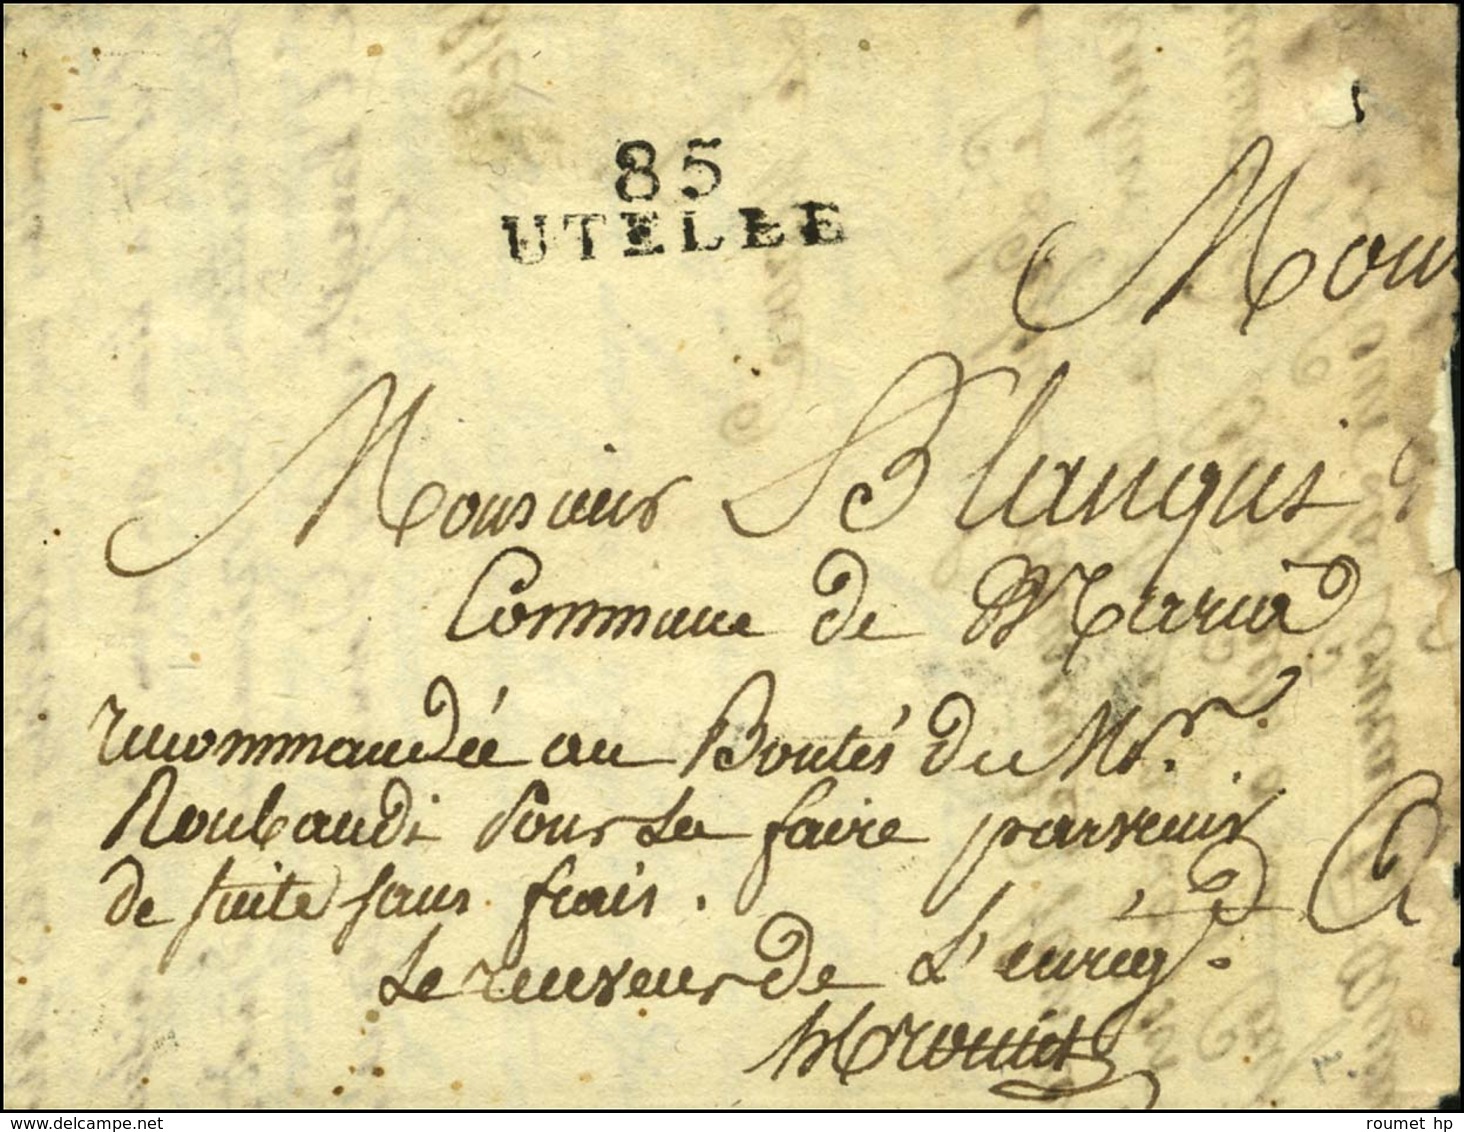 85
UTELLE
Mons
Monsieur Blanqui
Commune de Maria
recommandée au Bontés du Mr.
Roubaudi Pour La faire parvenir
de suite sans frais.
Le receveur de L'enreg.
roumet hp